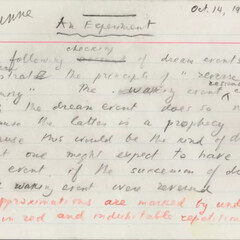 Oct. 14, 19
An Experiment
following checking of dream events
the principle of "reverse
the waking event
the dream event does so
the latter is a prophecy
this would be the kind of
one might expect to have
event of the succession of
waking event were reversed
approximations are marked by
in red and indubitable repetitions